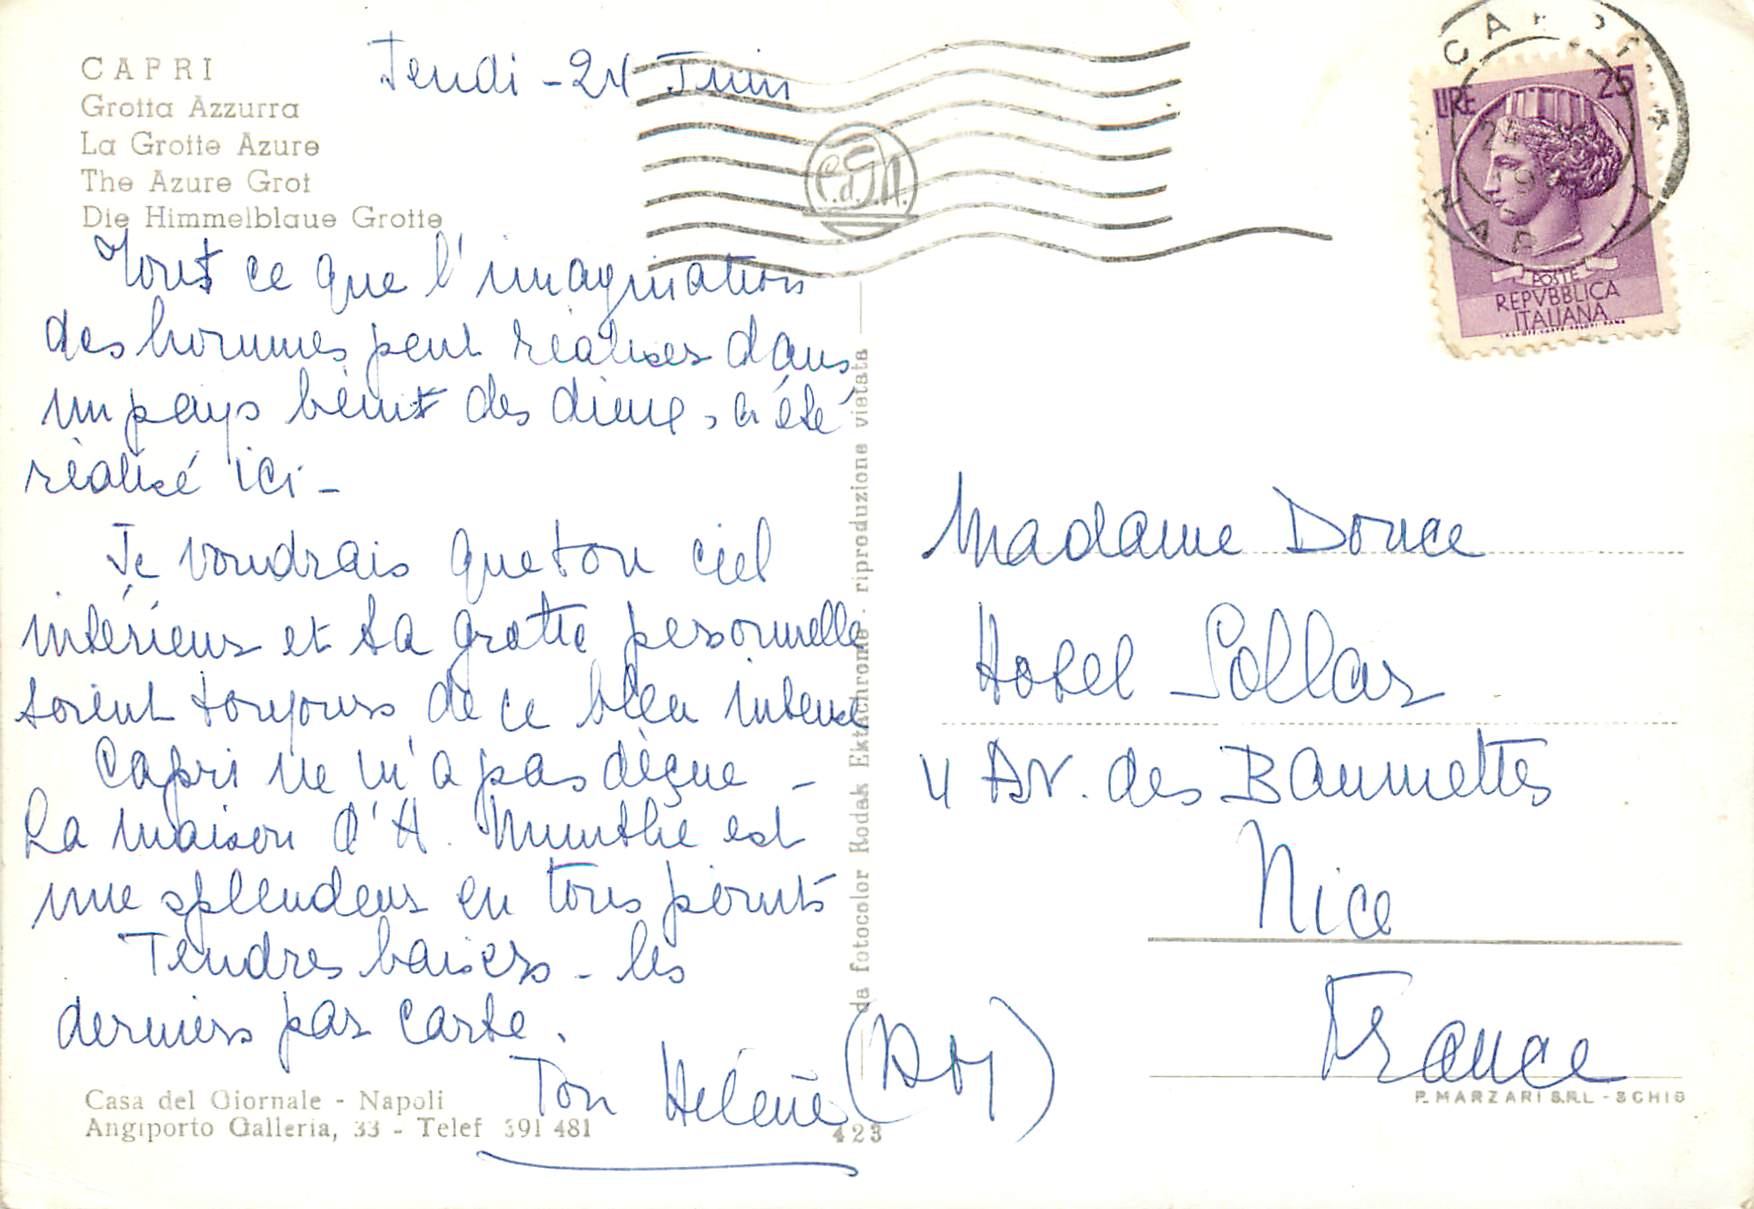 CAPRI
Grotta Azzurra
La Grotte Azure
The Azure Grot
Die Himmelblaue Grotte
Jeudi - 24 Juin
Tout ce que l'imagination
des hommes peut réaliser dans
un pays bénit des dieux, a été
réalisé ici -
Je voudrais que ton ciel
intérieur et ta grotte personnelle
soient toujours de ce bleu intense
Capri ne m'a pas déçue -
La maison d'A. Munthe est
une splendeur en tous points
Tendres baisers - les
derniers par carte.
Ton Hélène (Roy)
Casa del Giornale - Napoli
Angiporto Galleria, 33 - Telef 391 481
423
da fotocolor Kodak Ektachrome - riproduzione vietata
LIRE 25
POSTE
REPVBBLICA
ITALIANA
Madame Douce
Hotel Sollar
4 Av. des Baumettes
Nice
France
P. MARZARI S.R.L - SCHIO